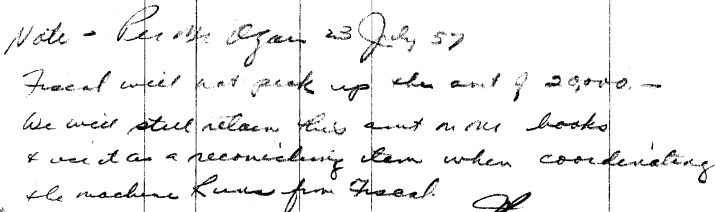 Note - Per Mr Ogan 23 July 57
Fiscal will not pick up this amt of 20,000.—
We will still retain this amt on our books
& use it as a reconciling item when coordinating
the machine Runs from Fiscal.